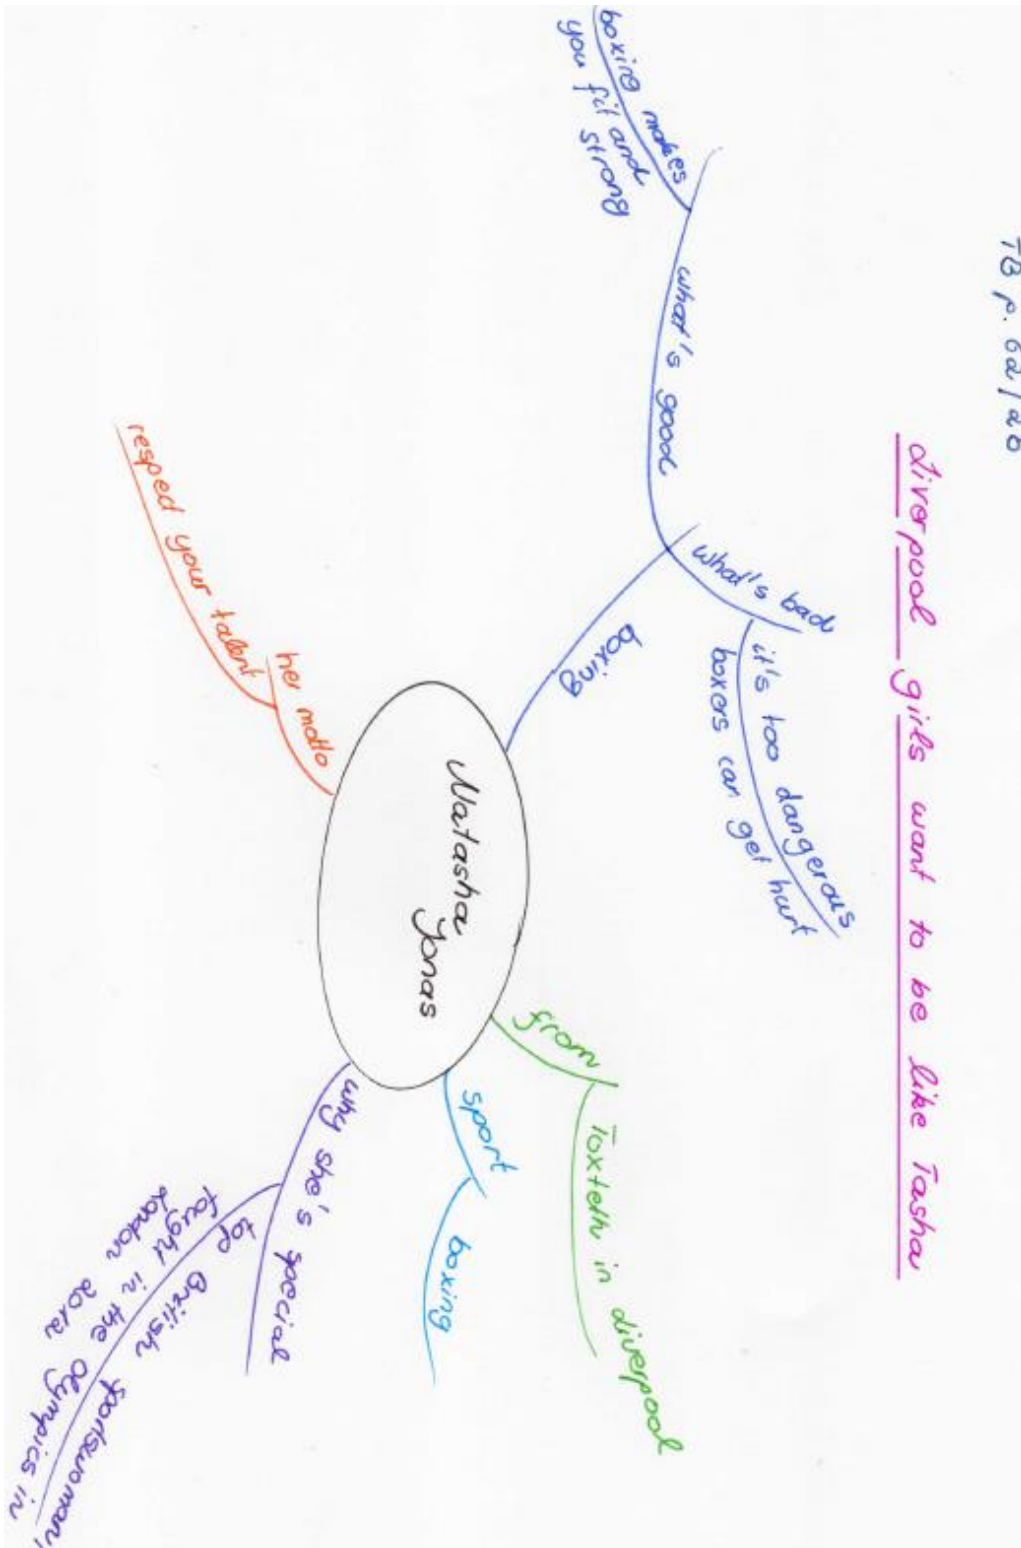 TB p. 62/2b
Liverpool girls want to be like Tasha
Natasha
Jonas
boxing
what's good
boxing makes
you fit and
strong
what's bad
it's too dangerous
boxers can get hurt
from
Toxteth in Liverpool
sport
boxing
why she's special
top British sportswoman,
fought in the Olympics in
London 2012
her motto
respect your talent